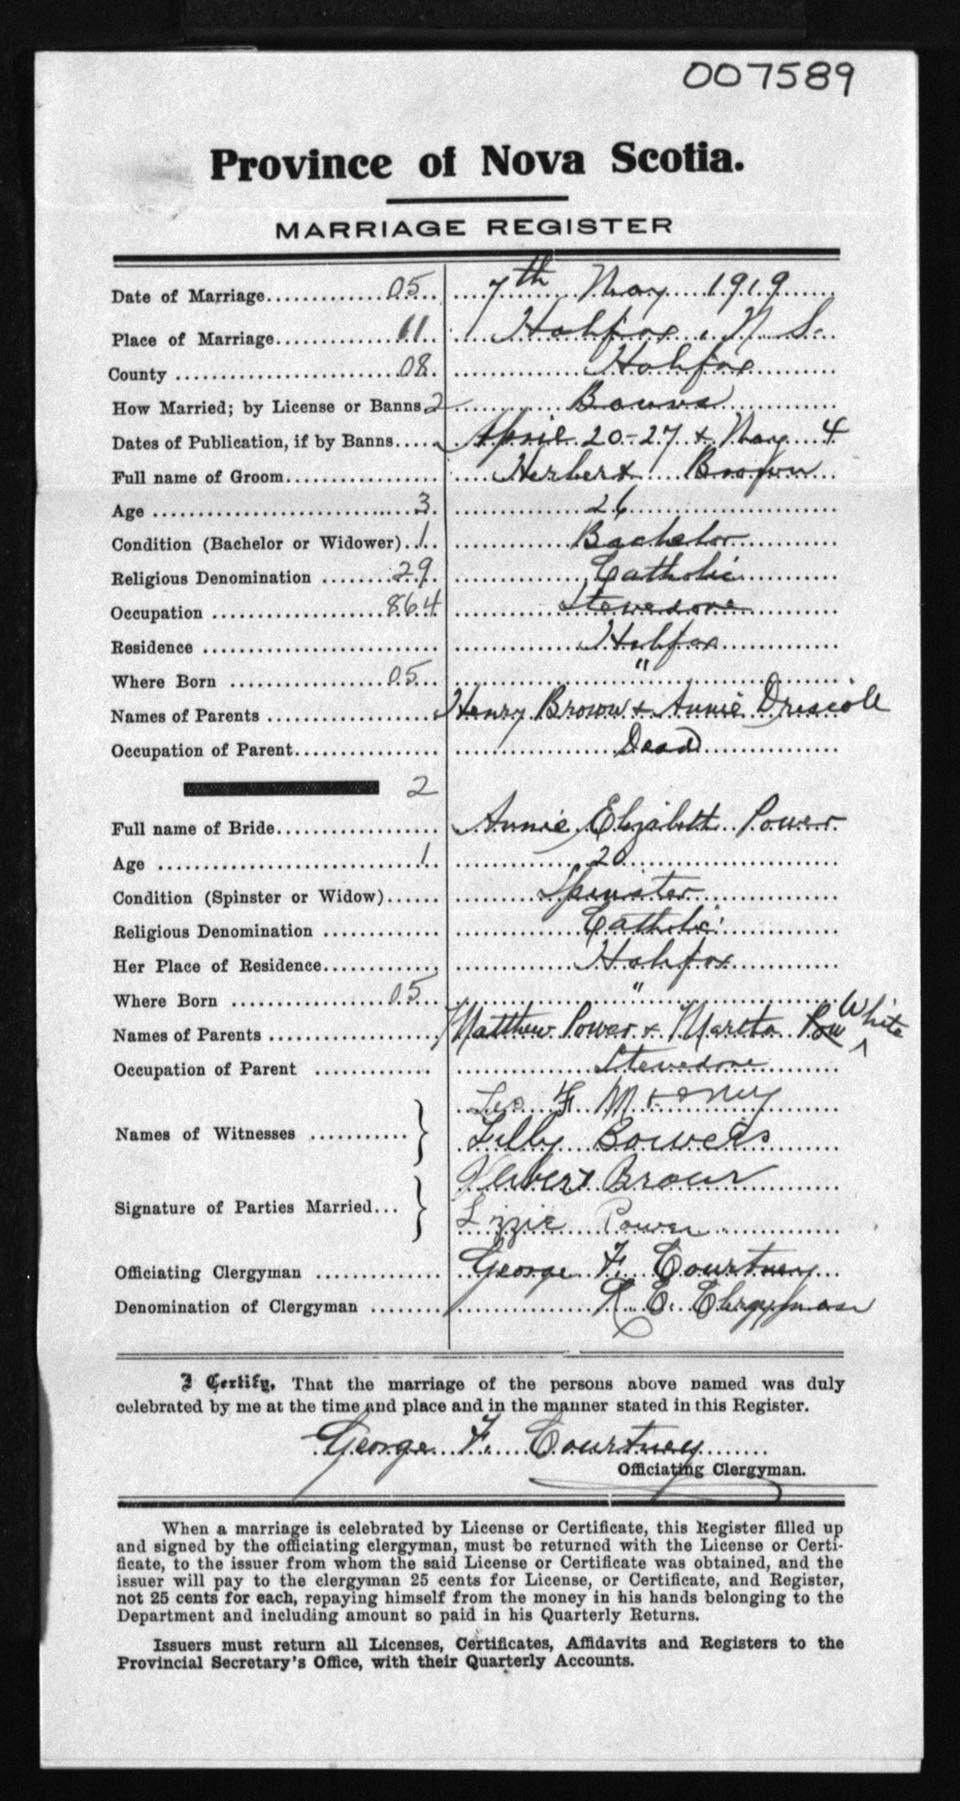 007589
Province of Nova Scotia.
MARRIAGE REGISTER
Date of Marriage 05 7th May 1919
Place of Marriage 11 Halifax, N. S.
County 08 Halifax
How Married; by License or Banns 2 Banns
Dates of Publication, if by Banns April 20-27 & May 4
Full name of Groom Herbert Brown
Age 3 26
Condition (Bachelor or Widower) 1 Bachelor
Religious Denomination 29 Catholic
Occupation 864 Stevedore
Residence Halifax
Where Born 05 "
Names of Parents Henry Brown & Annie Driscoll
Occupation of Parent Dead
2
Full name of Bride Annie Elizabeth Power
Age 1 20
Condition (Spinster or Widow) Spinster
Religious Denomination Catholic
Her Place of Residence Halifax
Where Born 05 "
Names of Parents Matthew Power & Martha Pow White
Occupation of Parent Stevedore
Leo F.
Names of Witnesses Lilly Bowers
Herbert Brown
Signature of Parties Married Lizzie Power
Officiating Clergyman George F. Courtney
Denomination of Clergyman R. C. Clergyman
I Certify, That the marriage of the persons above named was duly
celebrated by me at the time and place and in the manner stated in this Register.
George F. Courtney
Officiating Clergyman.
When a marriage is celebrated by License or Certificate, this Register filled up
and signed by the officiating clergyman, must be returned with the License or Certi-
ficate, to the issuer from whom the said License or Certificate was obtained, and the
issuer will pay to the clergyman 25 cents for License, or Certificate, and Register,
not 25 cents for each, repaying himself from the money in his hands belonging to the
Department and including amount so paid in his Quarterly Returns.
Issuers must return all Licenses, Certificates, Affidavits and Registers to the
Provincial Secretary's Office, with their Quarterly Accounts.